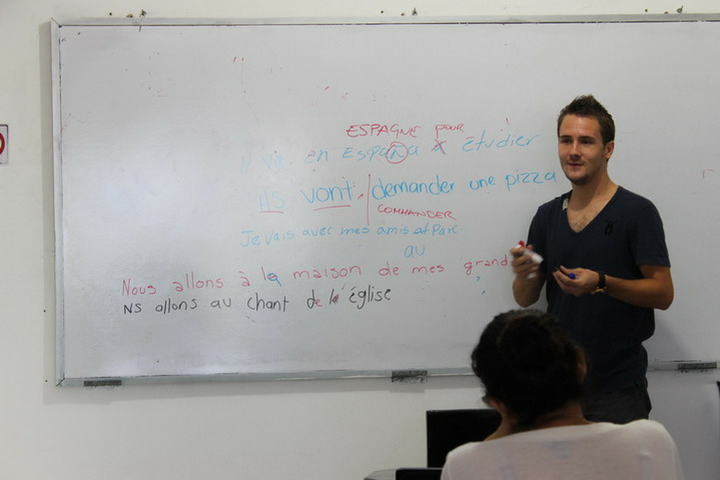 ESPAGNE pour
Il va en España x étudier
ils vont demander une pizza
COMMANDER
Je vais avec mes amis at Parc
au
Nous allons à la maison de mes grand
NS allons au chant de l' église